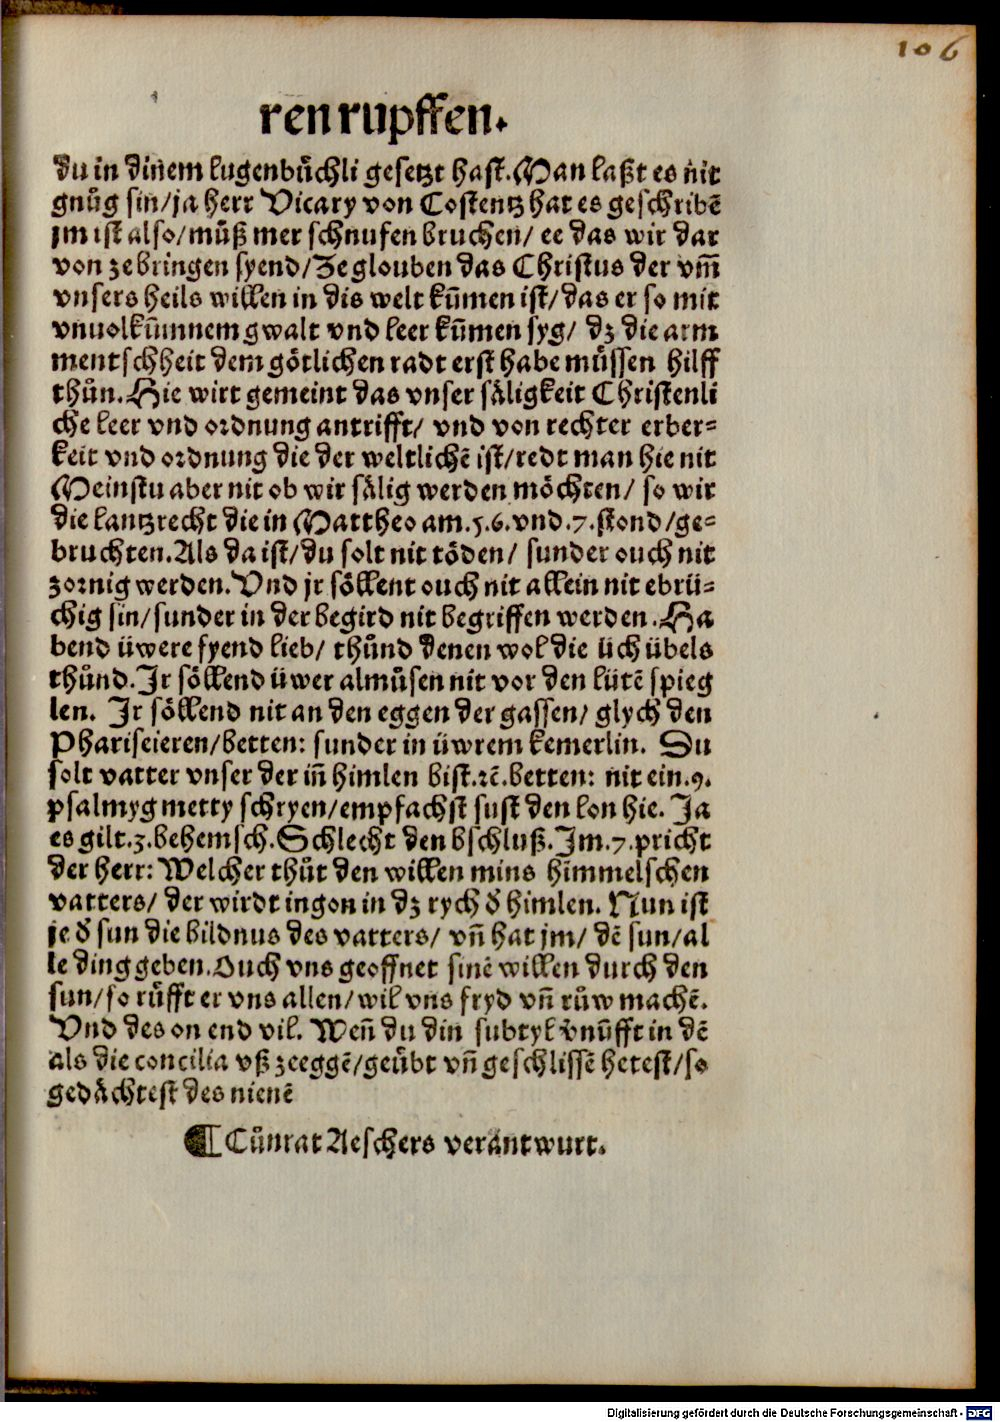 106
ren rupffen.
du in dinem lugenbůchli gesetzt hast. Man laßt es nit
gnůg sin/ja herr Vicary von Costentz hat es geschribē
jm ist also/můß mer schnufen bruchen/ ee das wir dar
von ze bringen syend/Ze glouben das Christus der vm̄
vnsers heils willen in dis welt kūmen ist/das er so mit
vnuolkūmnem gwalt vnd leer kūmen syg/ dz die arm
mentschheit dem götlichen radt erst habe müssen hilff
thůn. Hie wirt gemeint das vnser säligkeit Christenli
che leer vnd ordnung antrifft/ vnd von rechter erber-
keit vnd ordnung die der weltlichē ist/redt man hie nit
Meinstu aber nit ob wir sälig werden möchten/ so wir
die lantzrecht die in Mattheo am .5.6.vnd.7.stond/ge-
bruchten. Als da ist/du solt nit töden/ sunder ouch nit
zornig werden. Vnd jr söllent ouch nit allein nit ebrü-
chig sin/sunder in der begird nit begriffen werden. Ha
bend üwere fyend lieb/ thůnd denen wol die üch übels
thůnd. Jr söllend üwer almůsen nit vor den lütē spieg
len. Jr söllend nit an den eggen der gassen/ glych den
Phariseieren/betten: sunder in üwrem kemerlin. Du
solt vatter vnser der in̄ himlen bist.ꝛē.betten: nit ein.9.
psalmyg metty schryen/empfachst sust den lon hie. Ja
es gilt.3.behemsch. Schlecht den bschluß. Im.7.pricht
der herr: Welcher thůt den willen mins himmelschen
vatters/ der wirdt ingon in dz rych δ himlen. Nun ist
je δ sun die bildnus des vatters/ vn̄ hat jm/ dē sun/al
le ding geben. Ouch vns geoffnet sinē willen durch den
sun/so růfft er vns allen/wil vns fryd vn̄ růw machē.
Vnd des on end vil. Wen̄ du din subtyl v̄nūfft in dē
als die concilia vß zeeggē/geůbt vn̄ geschlissē hetest/so
gedächtest des nienē
¶ Cůnrat Aeschers verantwurt.
Digitalisierung gefördert durch die Deutsche Forschungsgemeinschaft - DFG